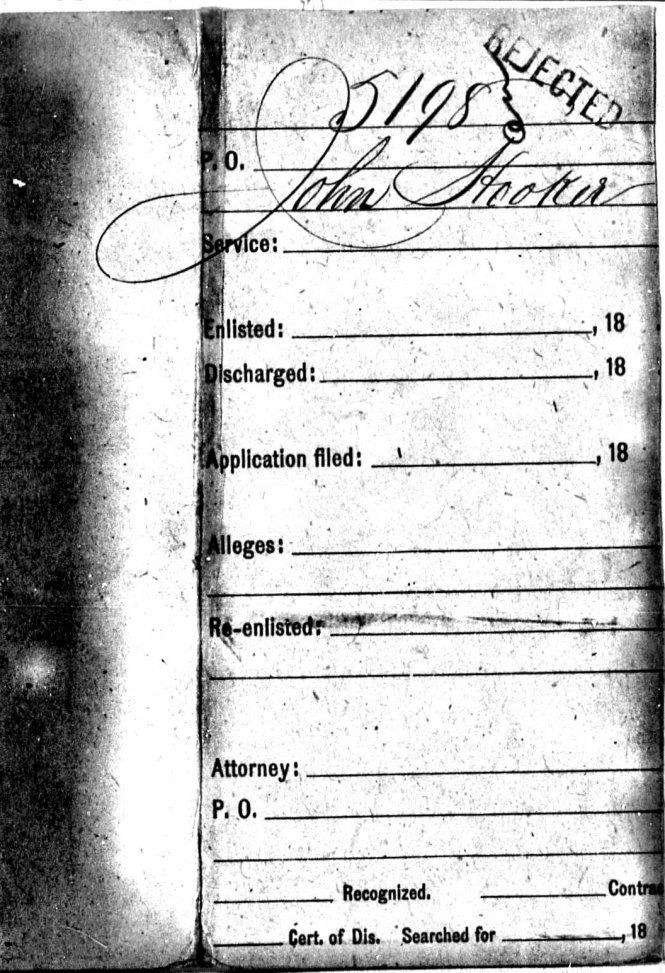 REJECTED
5198
P. O.
John Hooker
Service:
Enlisted: , 18
Discharged: , 18
Application filed: , 18
Alleges:
Re-enlisted:
Attorney:
P. O.
Recognized. Contra
Cert. of Dis. Searched for , 18